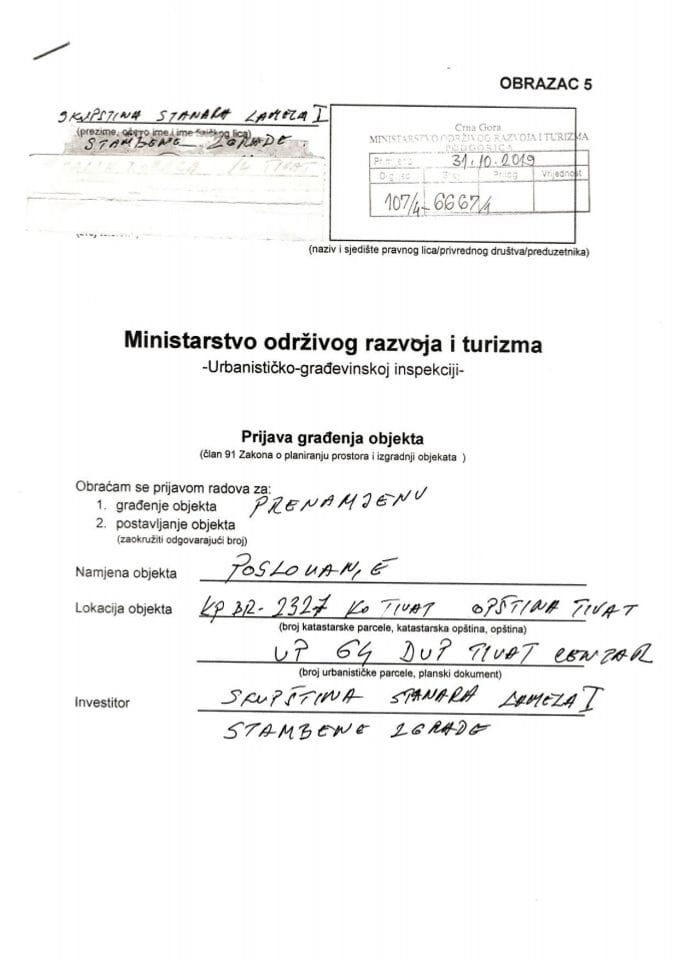 OBRAZAC 5
SKUPSTINA STANARA LAMELA I
(prezime, očevo ime i ime fizičkog lica)
STAMBENE ZGRADE
Crna Gora
MINISTARSTVO ODRŽIVOG RAZVOJA I TURIZMA
PODGORICA
31.10.2019
Prilog Vrijednost
107/4-6667/1
(naziv i sjedište pravnog lica/privrednog društva/preduzetnika)
Ministarstvo održivog razvoja i turizma
-Urbanističko-građevinskoj inspekciji-
Prijava građenja objekta
(član 91 Zakona o planiranju prostora i izgradnji objekata )
Obraćam se prijavom radova za:
1. građenje objekta PRENAMJENU
2. postavljanje objekta
(zaokružiti odgovarajući broj)
Namjena objekta POSLOVANJE
Lokacija objekta KP BR- 2327 KO TIVAT OPŠTINA TIVAT
(broj katastarske parcele, katastarska opština, opština)
UP 64 DUP TIVAT CENTAR
(broj urbanističke parcele, planski dokument)
Investitor SKUPŠTINA STANARA LAMELA I
STAMBENE ZGRADE